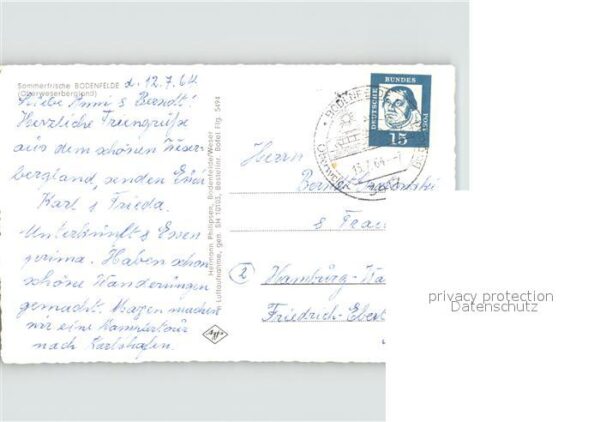 Sommerfrische BODENFELDE
(Oberweserbergland)
d. 12.7.64
Liebe Anni & Berndt!
Herzliche Feriengrüße
aus dem schönen Weser-
bergland, senden Euch
Karl & Frieda.
Unterkunft & Essen
prima. Haben schon
schöne Wanderungen
gemacht. Morgen machen
wir eine Dampfertour
nach Karlshafen.
Hermann Philipsen, Bodenfelde/Weser
Luftaufnahme, gen. SH 10/05, Bestellnr. Rotel Ftg. 5494
Agfa
BODENFELDE
13.7.64-7
DEUTSCHE
BUNDES
POST
15
Herrn
Bernd
& Frau
2 Hamburg-
Friedrich-Ebert
privacy protection
Datenschutz